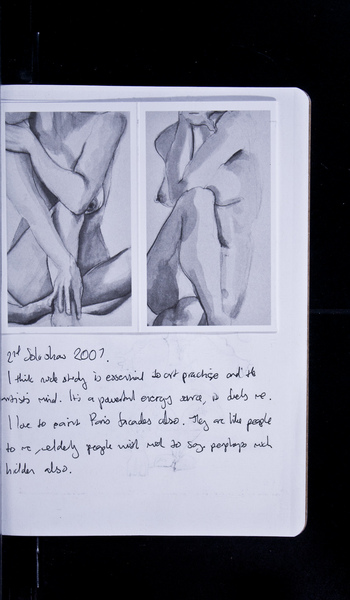 2nd Solo show 2007.
I think nude study is essential to art practise and the
artists mind. It's a powerful energy source, it fuels me.
I love to paint Paris facades also. They are like people
to me, elderly people with much to say, perhaps much
hidden also.